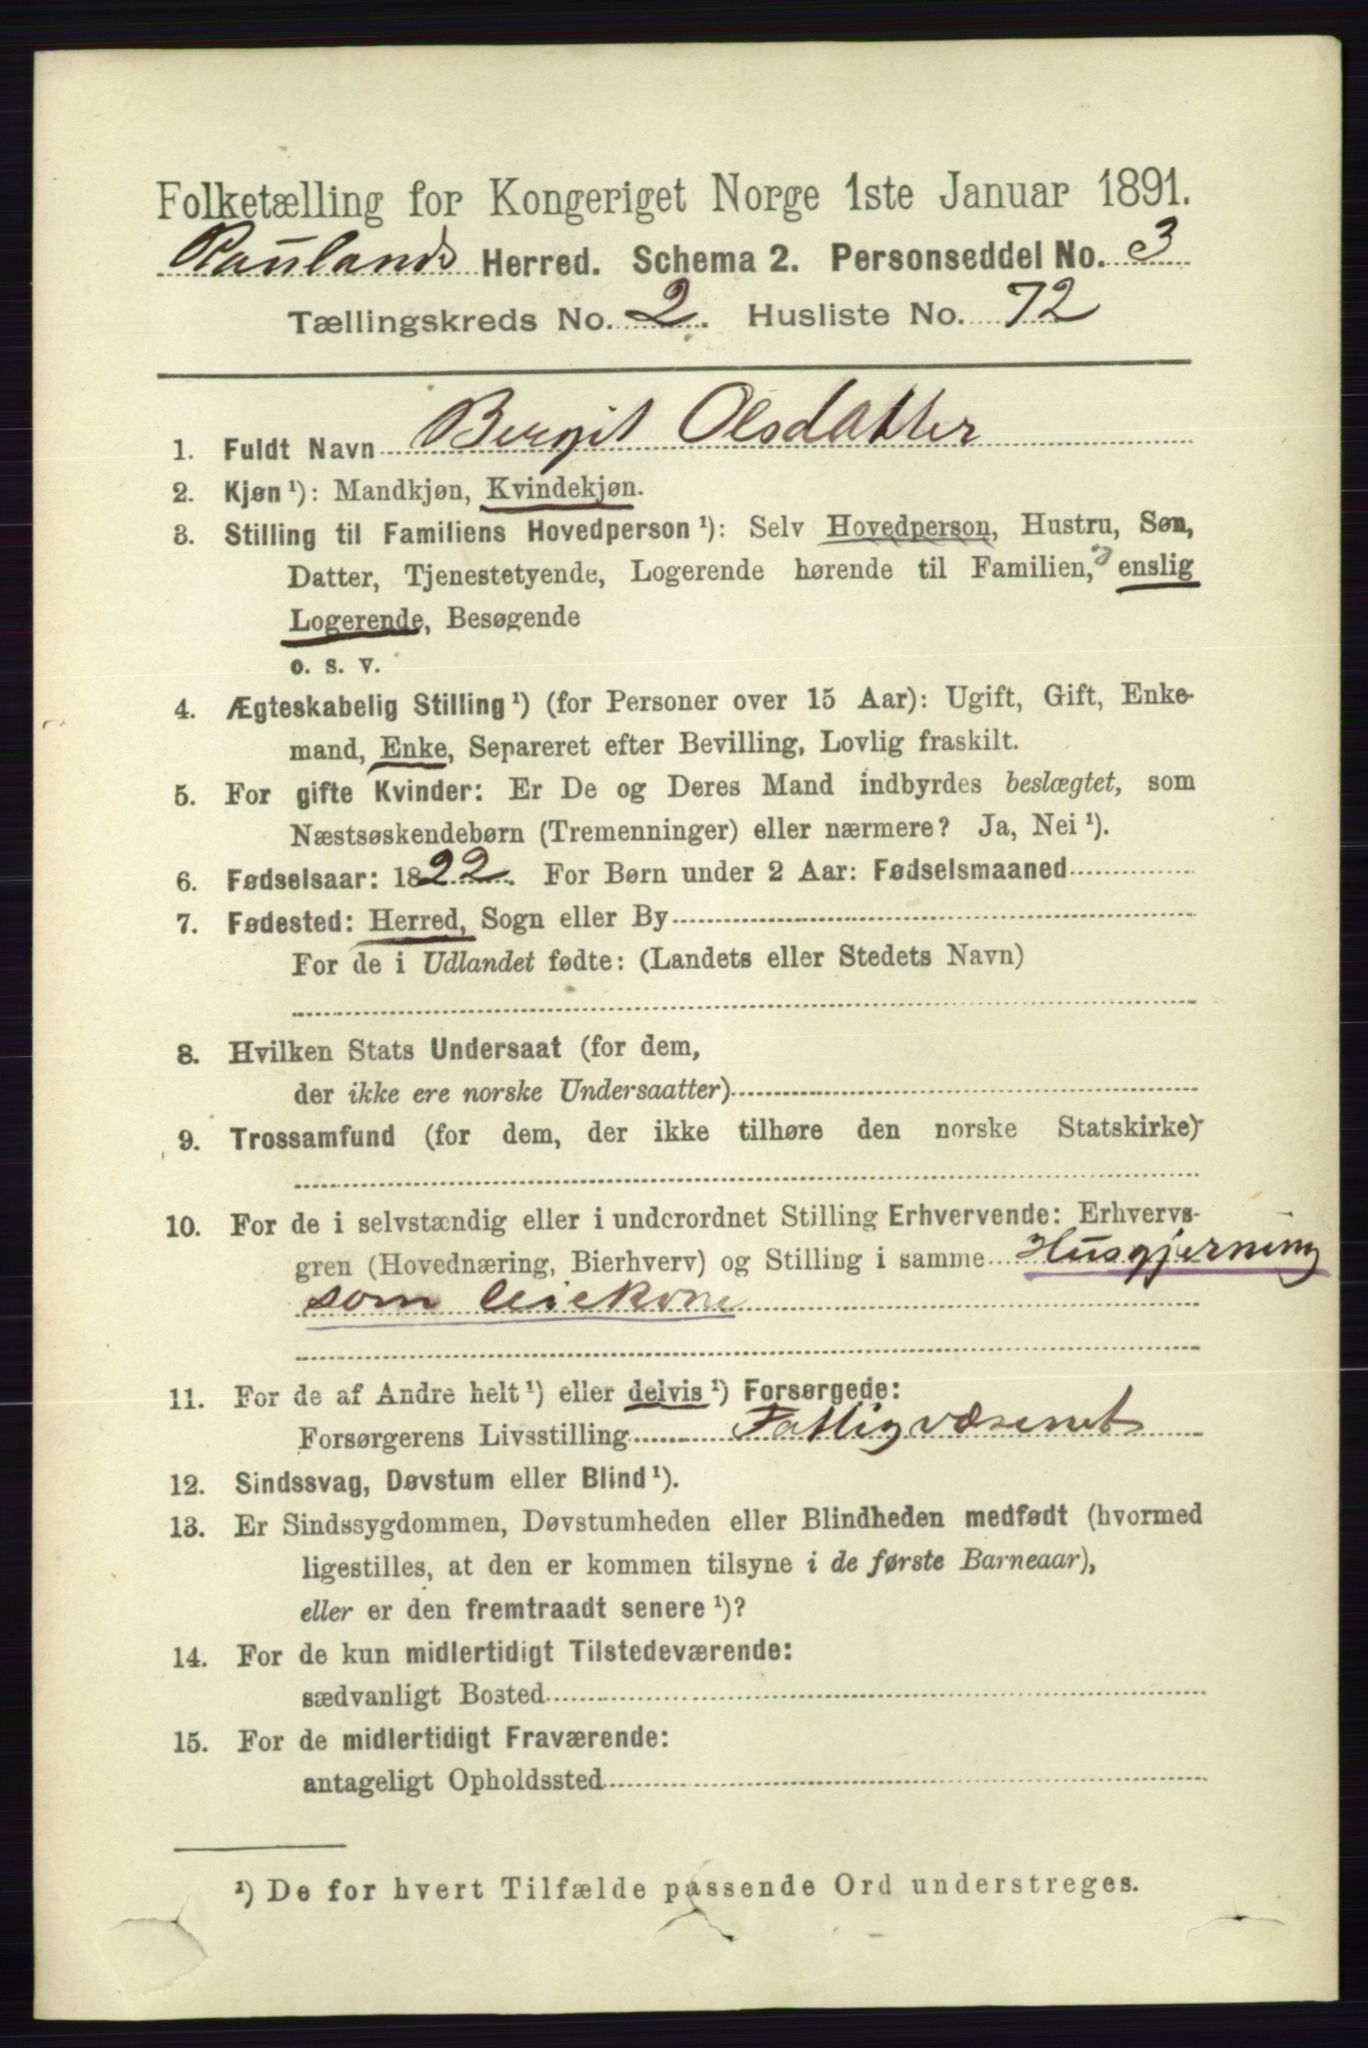 Folketælling for Kongeriget Norge 1ste Januar 1891.
Raulands Herred. Schema 2. Personseddel No. 3
Tællingskreds No. 2. Husliste No. 72
1. Fuldt Navn Bergit Olsdatter
2. Kjøn ¹): Mandkjøn, Kvindekjøn.
3. Stilling til Familiens Hovedperson ¹): Selv Hovedperson, Hustru, Søn,
Datter, Tjenestetyende, Logerende hørende til Familien, enslig
Logerende, Besøgende
o. s. v.
4. Ægteskabelig Stilling ¹) (for Personer over 15 Aar): Ugift, Gift, Enke-
mand, Enke, Separeret efter Bevilling, Lovlig fraskilt.
5. For gifte Kvinder: Er De og Deres Mand indbyrdes beslægtet, som
Næstsøskendebørn (Tremenninger) eller nærmere? Ja, Nei ¹).
6. Fødselsaar: 1822. For Børn under 2 Aar: Fødselsmaaned
7. Fødested: Herred, Sogn eller By
For de i Udlandet fødte: (Landets eller Stedets Navn)
8. Hvilken Stats Undersaat (for dem,
der ikke ere norske Undersaatter)
9. Trossamfund (for dem, der ikke tilhøre den norske Statskirke)
10. For de i selvstændig eller i underordnet Stilling Erhvervende: Erhvervs-
gren (Hovednæring, Bierhverv) og Stilling i samme Husgjerning
som leiekone
11. For de af Andre helt ¹) eller delvis ¹) Forsørgede:
Forsørgerens Livsstilling Fattigvæsenet
12. Sindssvag, Døvstum eller Blind ¹).
13. Er Sindssygdommen, Døvstumheden eller Blindheden medfødt (hvormed
ligestilles, at den er kommen tilsyne i de første Barneaar),
eller er den fremtraadt senere ¹)?
14. For de kun midlertidigt Tilstedeværende:
sædvanligt Bosted
15. For de midlertidigt Fraværende:
antageligt Opholdssted
¹) De for hvert Tilfælde passende Ord understreges.